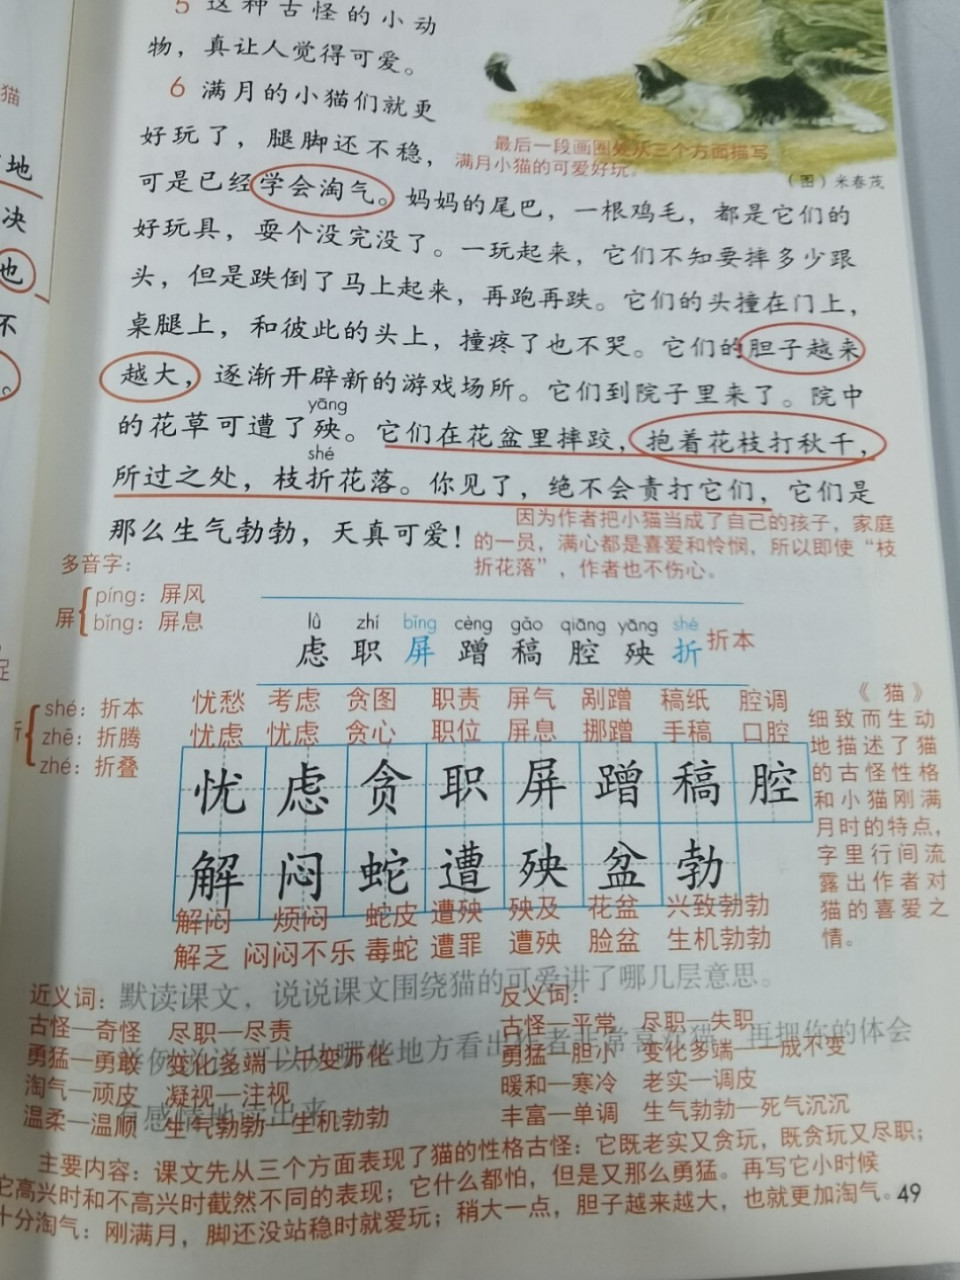 5 这种古怪的小动
物，真让人觉得可爱。
6 满月的小猫们就更
好玩了，腿脚还不稳，
可是已经学会淘气。妈妈的尾巴，一根鸡毛，都是它们的
好玩具，耍个没完没了。一玩起来，它们不知要摔多少跟
头，但是跌倒了马上起来，再跑再跌。它们的头撞在门上，
桌腿上，和彼此的头上，撞疼了也不哭。它们的胆子越来
越大，逐渐开辟新的游戏场所。它们到院子里来了。院中
yāng
的花草可遭了殃。它们在花盆里摔跤，抱着花枝打秋千，
shé
所过之处，枝折花落。你见了，绝不会责打它们，它们是
那么生气勃勃，天真可爱！
最后一段画圈处从三个方面描写
满月小猫的可爱好玩。
（图）米春茂
因为作者把小猫当成了自己的孩子，家庭
的一员，满心都是喜爱和怜悯，所以即使“枝
折花落”，作者也不伤心。
多音字：
屏 píng：屏风
bǐng：屏息
shé：折本
zhē：折腾
zhé：折叠
lǜ zhí bǐng cèng gǎo qiāng yāng shé
虑 职 屏 蹭 稿 腔 殃 折 折本
忧愁 考虑 贪图 职责 屏气 剐蹭 稿纸 腔调
忧虑 忧虑 贪心 职位 屏息 挪蹭 手稿 口腔
忧 虑 贪 职 屏 蹭 稿 腔
解 闷 蛇 遭 殃 盆 勃
解闷 烦闷 蛇皮 遭殃 殃及 花盆 兴致勃勃
解乏 闷闷不乐 毒蛇 遭罪 遭殃 脸盆 生机勃勃
《猫》
细致而生动
地描述了猫
的古怪性格
和小猫刚满
月时的特点，
字里行间流
露出作者对
猫的喜爱之
情。
默读课文，说说课文围绕猫的可爱讲了哪几层意思。
再把你的体会
近义词：
古怪—奇怪 尽职—尽责
勇猛—勇敢 变化多端—千变万化
淘气—顽皮 凝视—注视
温柔—温顺 生气勃勃—生机勃勃
反义词：
古怪—平常 尽职—失职
勇猛—胆小 变化多端—一成不变
暖和—寒冷 老实—调皮
丰富—单调 生气勃勃—死气沉沉
主要内容：课文先从三个方面表现了猫的性格古怪：它既老实又贪玩，既贪玩又尽职；
它高兴时和不高兴时截然不同的表现；它什么都怕，但是又那么勇猛。再写它小时候
十分淘气：刚满月，脚还没站稳时就爱玩；稍大一点，胆子越来越大，也就更加淘气。
49
猫
地
决
也
不
。